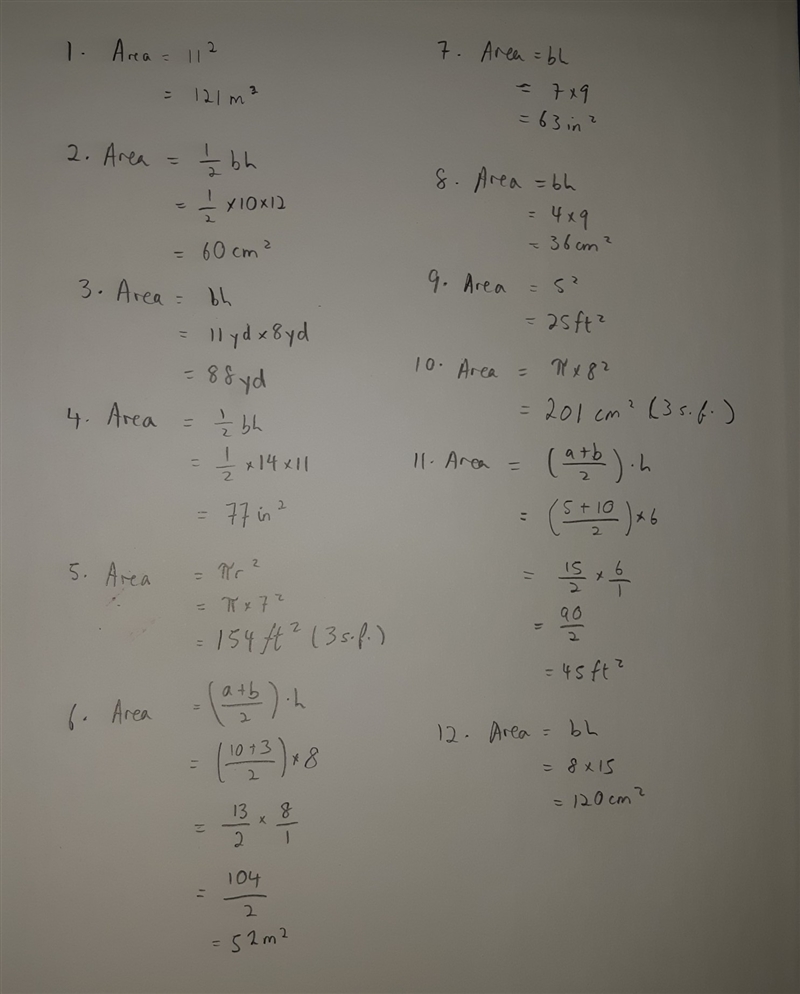 1. Area = 11²
= 121 m²
2. Area = 1/2 bh
= 1/2 × 10 × 12
= 60 cm²
3. Area = bh
= 11 yd × 8 yd
= 88 yd
4. Area = 1/2 bh
= 1/2 × 14 × 11
= 77 in²
5. Area = πr²
= π × 7²
= 154 ft² (3 s.f.)
6. Area = ((a+b)/2) · h
= ((10+3)/2) × 8
= 13/2 × 8/1
= 104/2
= 52 m²
7. Area = bh
= 7 × 9
= 63 in²
8. Area = bh
= 4 × 9
= 36 cm²
9. Area = 5²
= 25 ft²
10. Area = π × 8²
= 201 cm² (3 s.f.)
11. Area = ((a+b)/2) · h
= ((5+10)/2) × 6
= 15/2 × 6/1
= 90/2
= 45 ft²
12. Area = bh
= 8 × 15
= 120 cm²